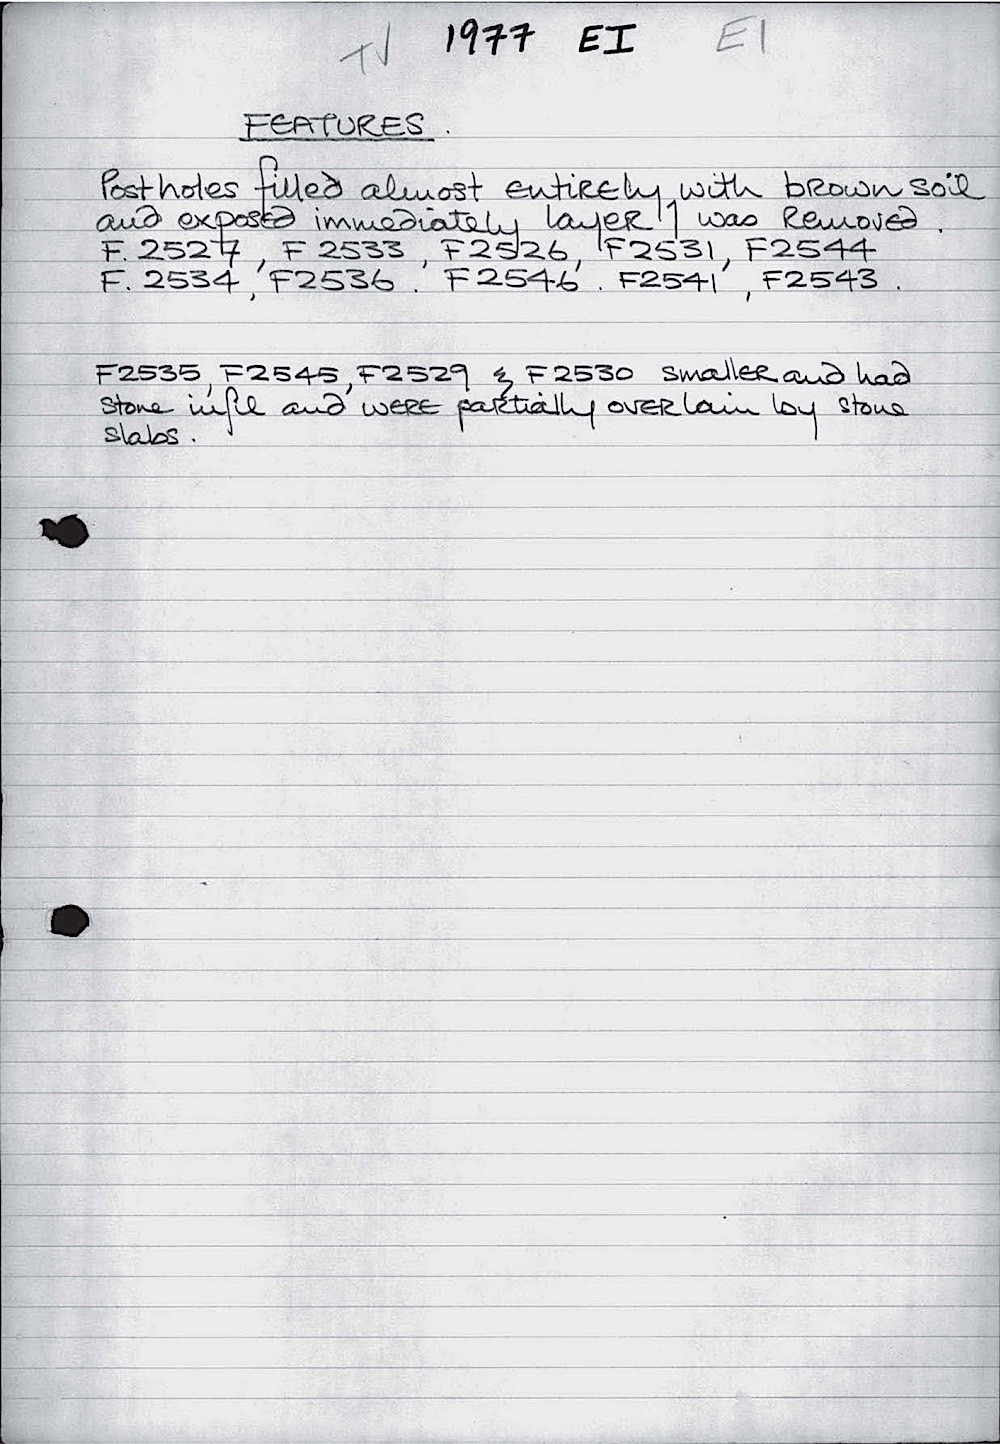 1977 EI EI
FEATURES.
Postholes filled almost entirely with brown soil
and exposed immediately layer 1 was Removed.
F. 2527, F 2533, F2526, F2531, F2544
F. 2534, F2536. F2546. F2541, F2543.
F2535, F2545, F2529 & F2530 smaller and had
stone infil and were partially overlain by stone
slabs.